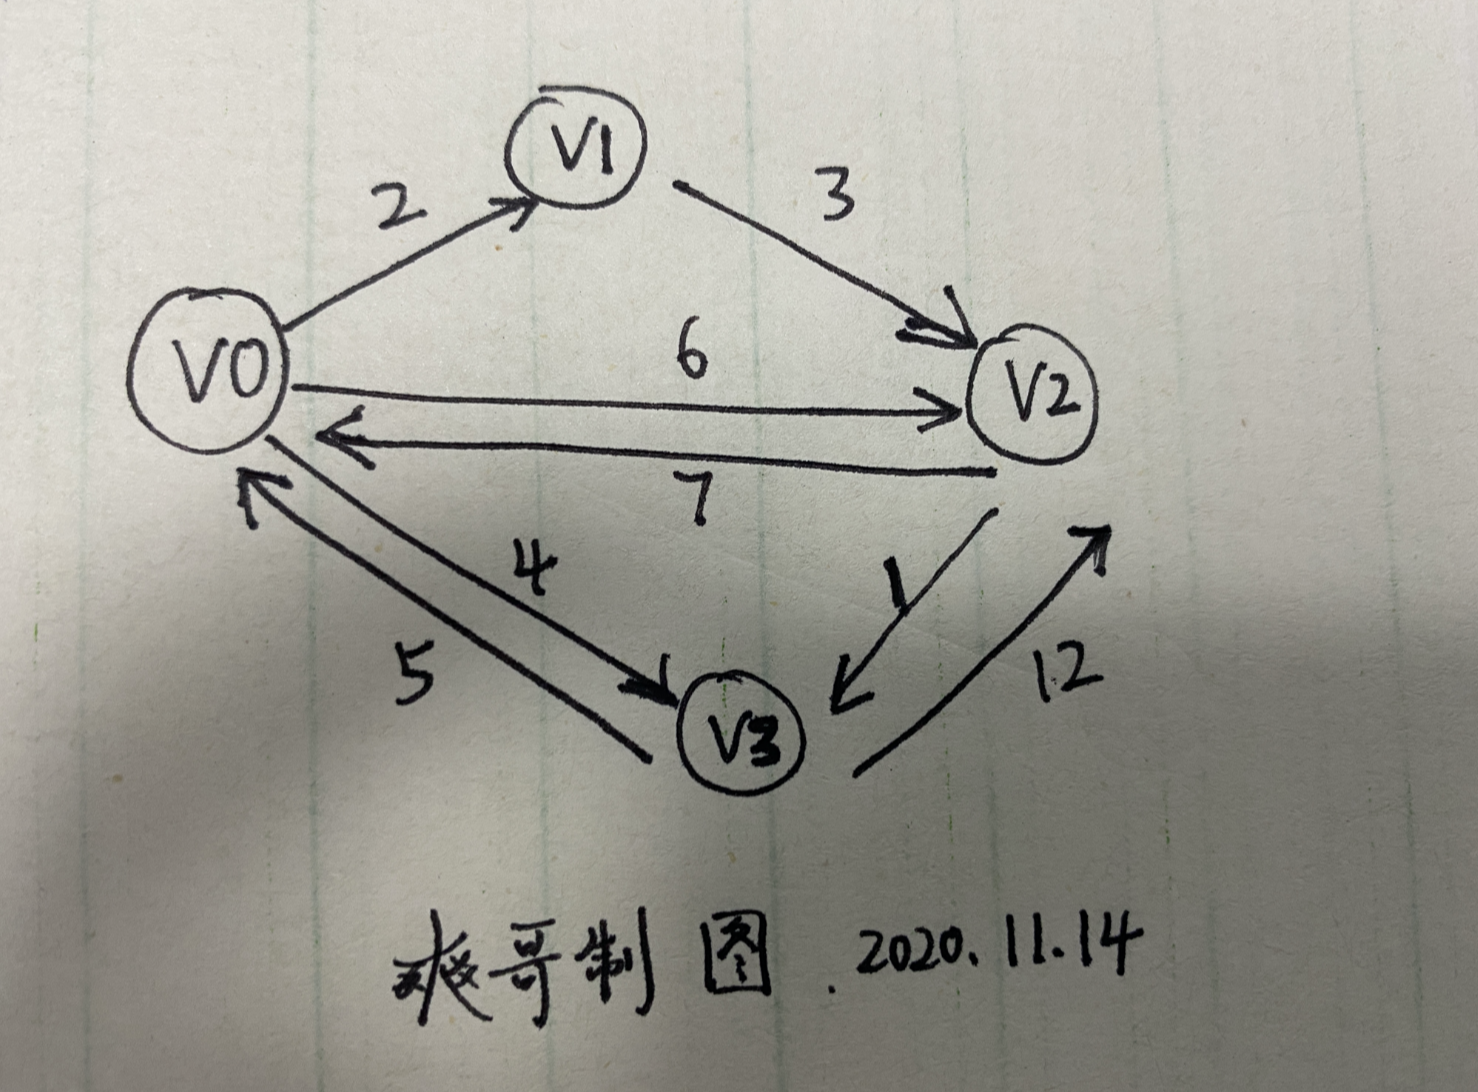 V1
2
3
V0
6
V2
7
4
1
5
12
V3
爽哥制图.2020.11.14